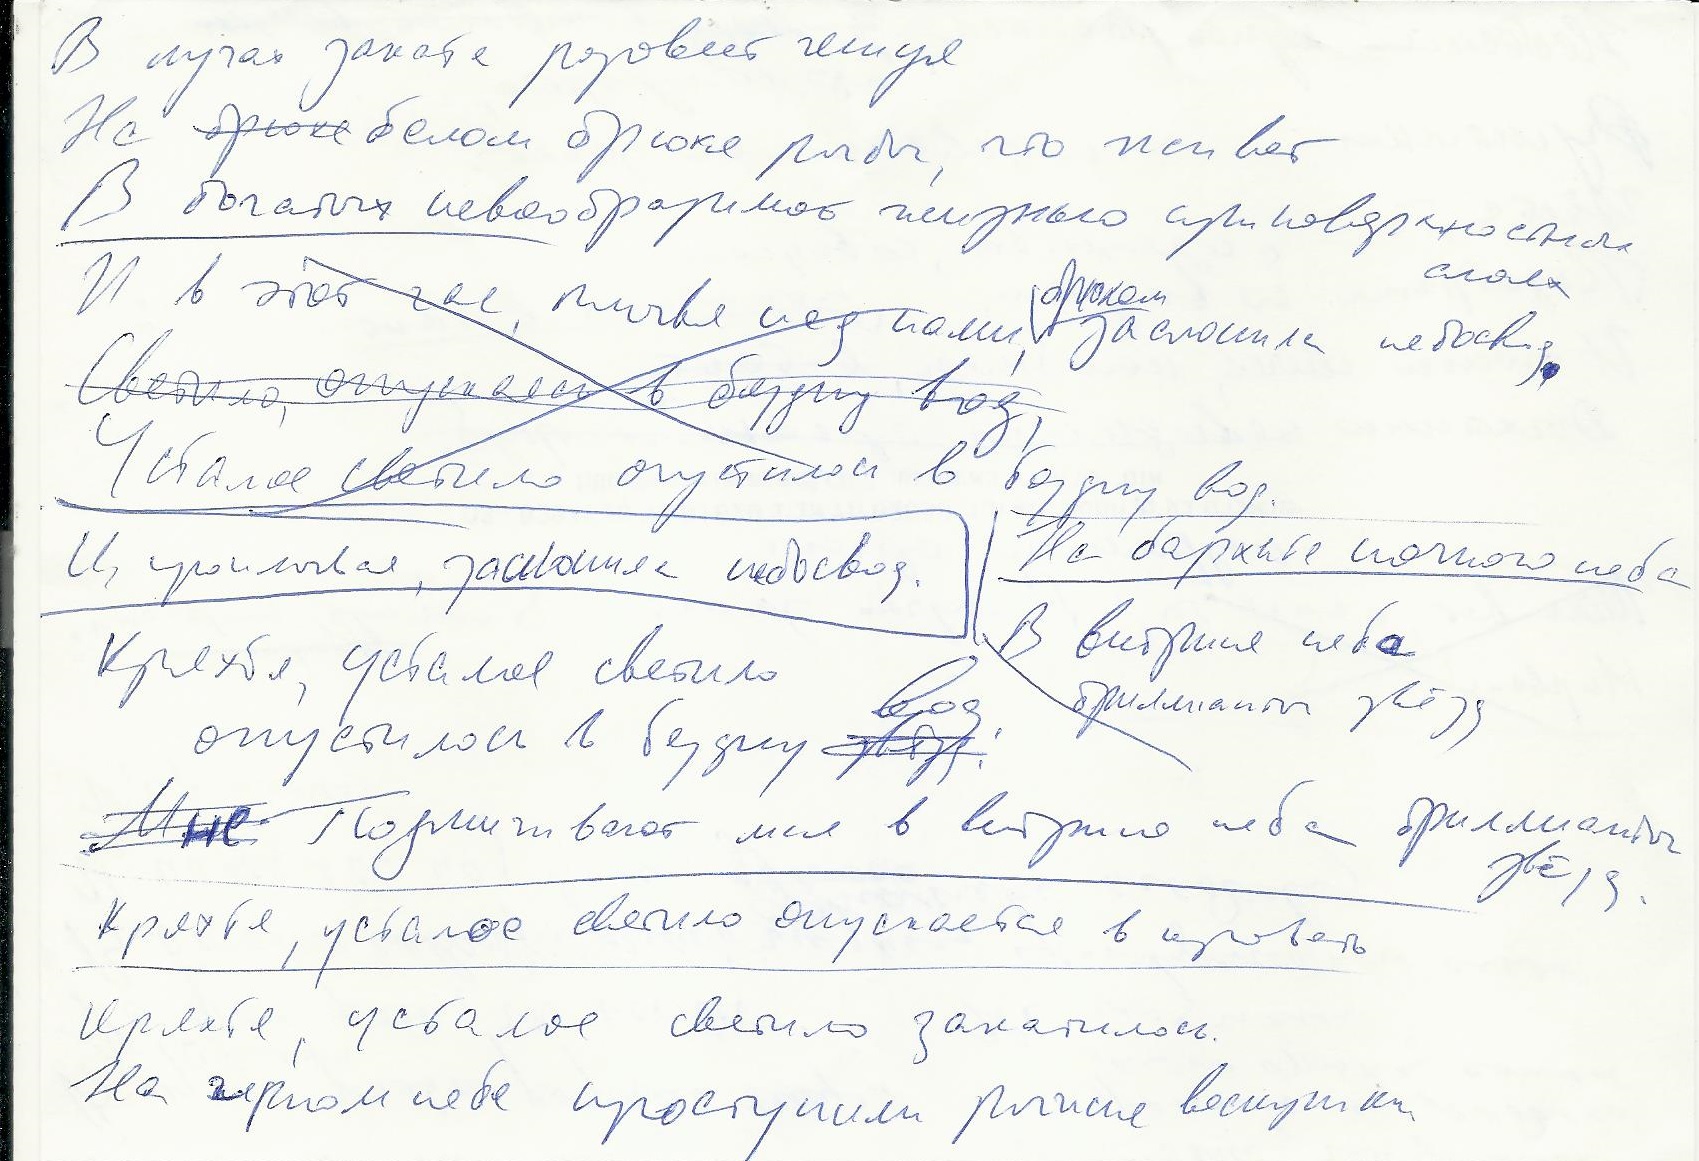 В лучах заката розовеет чешуя
На брюхе белом брюхе рыбы, что живёт
В богатых невообразимой жизнью приповерхностных
слоях
И в этот час, проплывая над нами, брюхом заслонила небосвод,
Светило, опускаясь в бездну вод,
Усталое светило опустилось в бездну вод.
И, проплывая, заслонила небосвод.
На бархате ночного неба
В витрине неба
бриллианты звёзд
Кряхтя, усталое светило
опустилось в бездну звёзд вод.
Мне Подмигивают мне в витрине неба бриллианты
звёзд.
Кряхтя, усталое светило опускается в кровать
Кряхтя, усталое светило закатилось.
На чёрном небе проступили рыжие веснушки